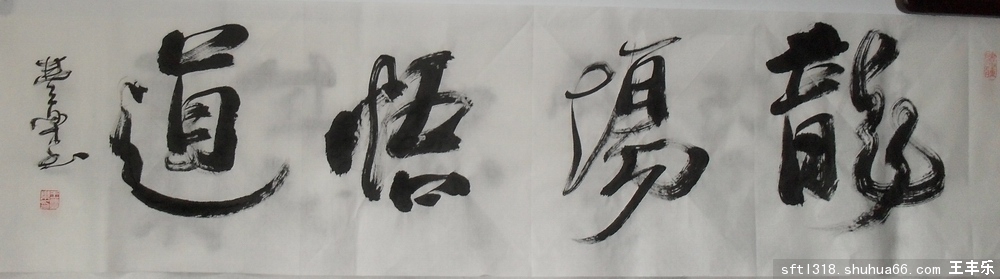 龍場悟道
sftl318.shuhua66.com 王丰乐